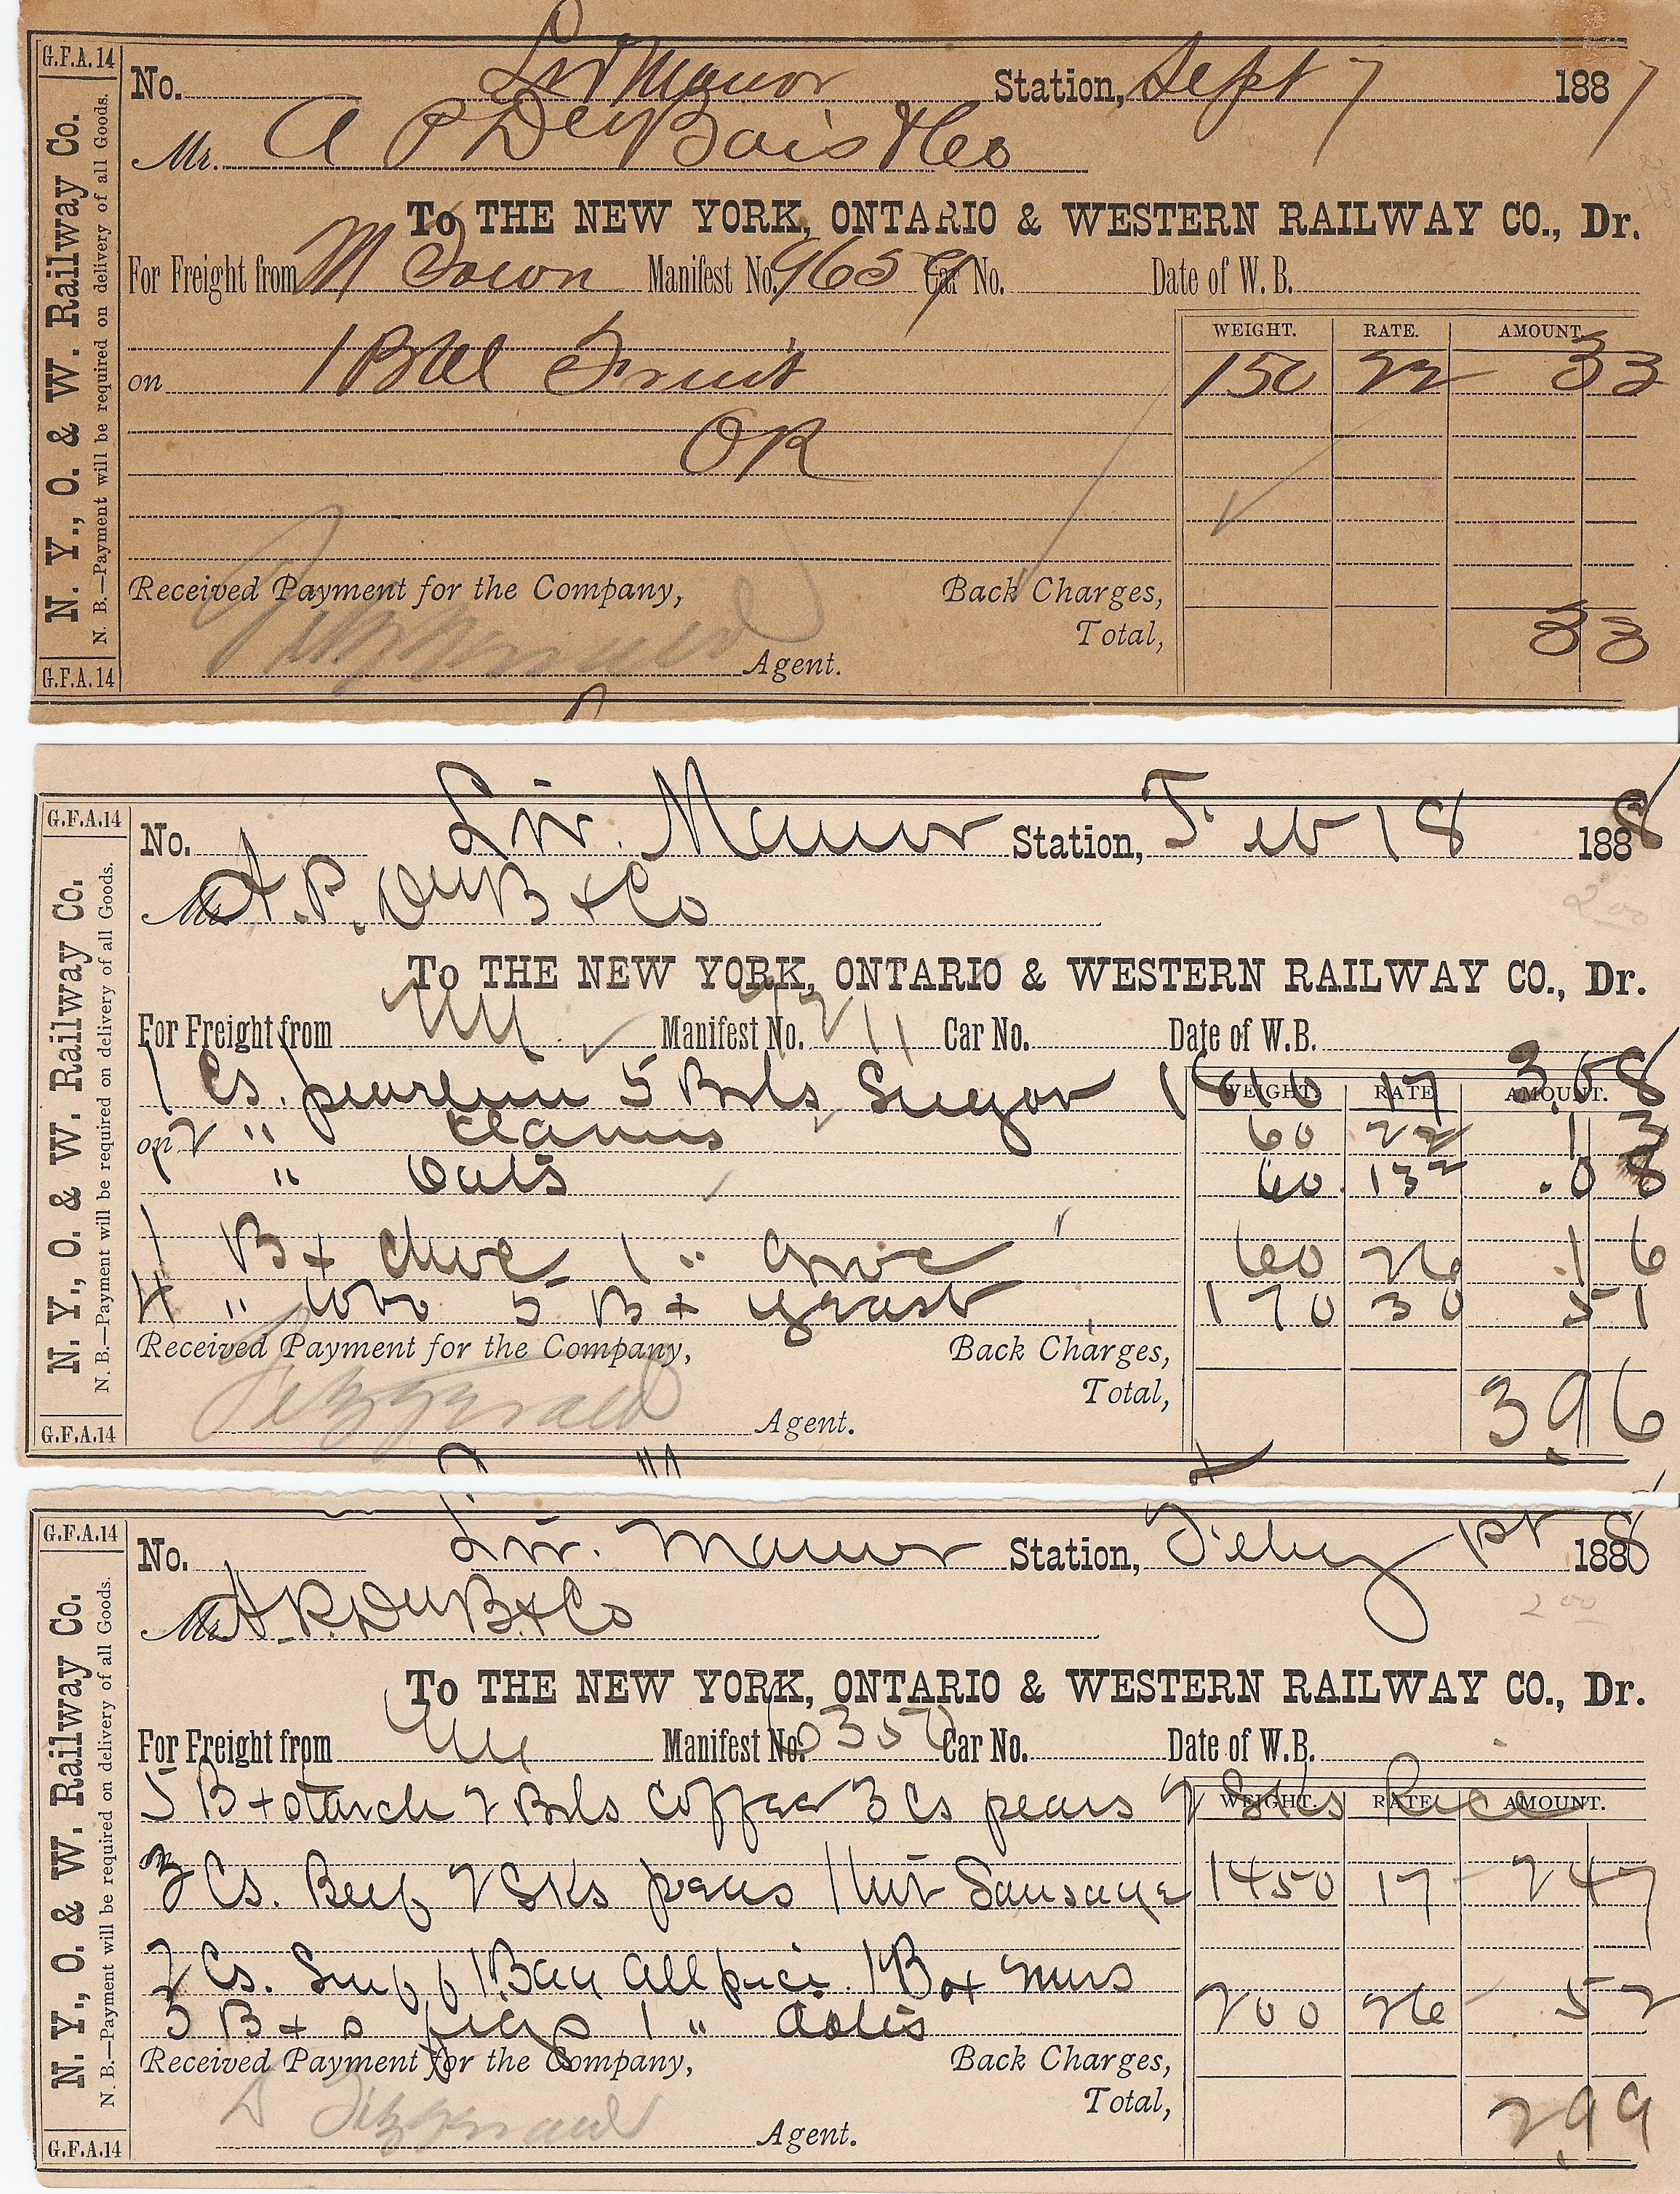 G.F.A. 14
N. Y., O. & W. Railway Co.
N. B.—Payment will be required on delivery of all Goods.
G.F.A. 14
No. Liv Manor Station, Sept 7 1887
Mr. A P DuBois & Co
To THE NEW YORK, ONTARIO & WESTERN RAILWAY CO., Dr.
For Freight from M Town Manifest No. 9659 Car No. Date of W. B.
WEIGHT. RATE. AMOUNT.
on 1 Bbl Fruit 150 22 33
OR
Received Payment for the Company, Back Charges,
Total, 33
Fitzgerald Agent.
G.F.A.14
N. Y., O. & W. Railway Co.
N. B.—Payment will be required on delivery of all Goods.
G.F.A.14
No. Liv. Manor Station, Feb 18 1888
2 00
Mr. A. P. DuB & Co
To THE NEW YORK, ONTARIO & WESTERN RAILWAY CO., Dr.
For Freight from NY Manifest No. 7211 Car No. Date of W.B.
WEIGHT. RATE AMOUNT.
1 Cs. pearline 5 Brls Sugar 1810 17 3.08
on 2 " 60 22 13
1 " Oats 60 13 .08
1 Bx 1 " 60 26 .16
4 " tobo 5 Bx yeast 170 30 51
Received Payment for the Company, Back Charges,
Total, 3.96
Fitzgerald Agent.
G.F.A.14
N. Y., O. & W. Railway Co.
N. B.—Payment will be required on delivery of all Goods.
G.F.A.14
No. Liv. Manor Station, Feby 1st 1888
2 00
Mr. A. P. DuB. & Co
To THE NEW YORK, ONTARIO & WESTERN RAILWAY CO., Dr.
For Freight from NY Manifest No. Car No. Date of W.B.
WEIGHT. RATE AMOUNT.
5 Bx starch 2 Brls Coffee 3 Cs pears 2 Sks Rice
on 3 Cs. Beef 2 Sks peas 1 Sausage 1450 17 247
2 Cs. Snuff 1 Bag Allspice 1 Box 200 26 52
3 Bxs figs 1 "
Received Payment for the Company, Back Charges,
Total, 2.99
D Fitzgerald Agent.